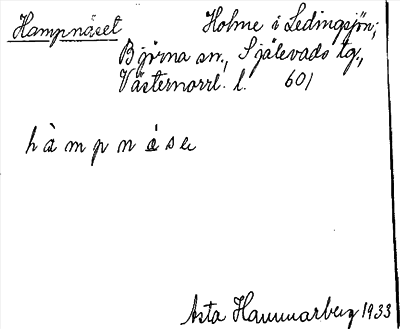 Hampnäset Holme i Ledingsjön;
Björna sn., Själevads tg.,
Västernorrl. l. 601
hàmpnése
Asta Hammarberg 1933